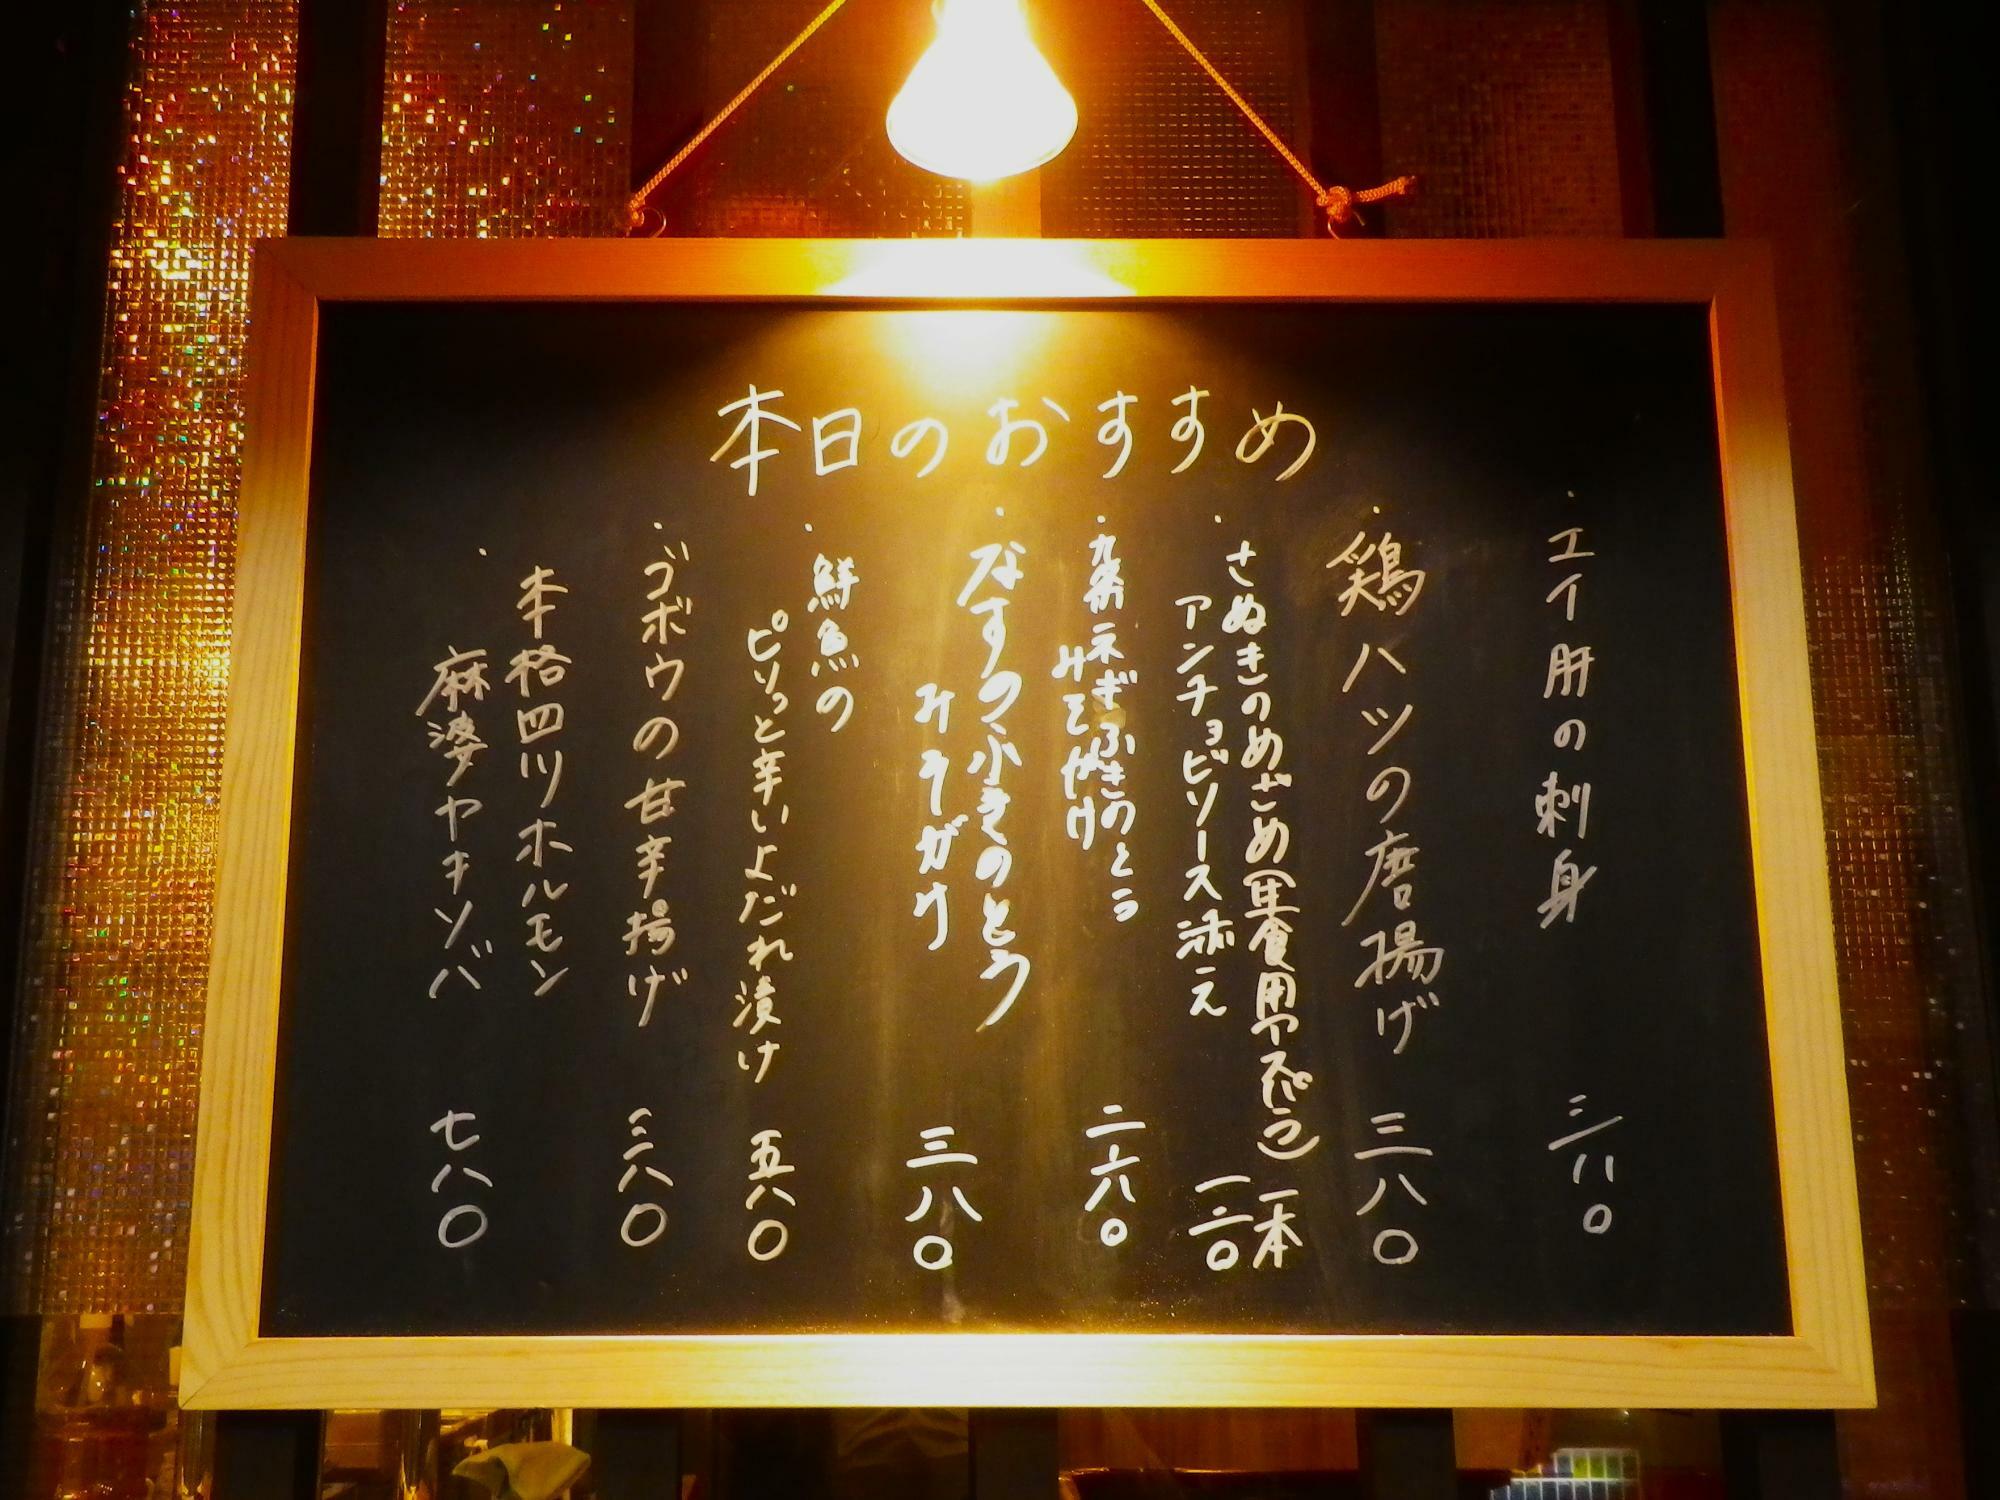 本日のおすすめ
・エイ肝の刺身 三八〇
・鶏ハツの唐揚げ 三八〇
・さぬきのめざめ(生食用アスパラ) 一本
アンチョビソース添え 一二〇
・九条ネギふきのとう
みそやけ 二八〇
・なすの小きのとう
みそがけ 三八〇
・鮮魚の
ピリっと辛いよだれ漬け 五八〇
・ゴボウの甘辛揚げ 三八〇
・本格四川ホルモン
麻婆ヤキソバ 七八〇